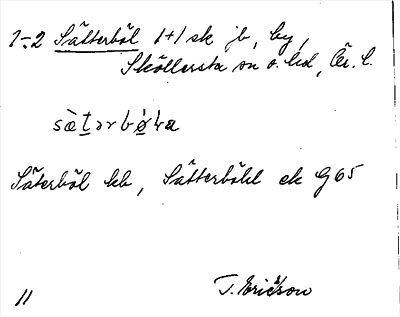 1-2 Sätterböl 1+1 sk jb, by,
Sköllersta sn o. hd, Ör. l.
sæ̀tərbø̀ɽa
Säterböl kb, Sätterböhl ek G65
11 T. Ericsson